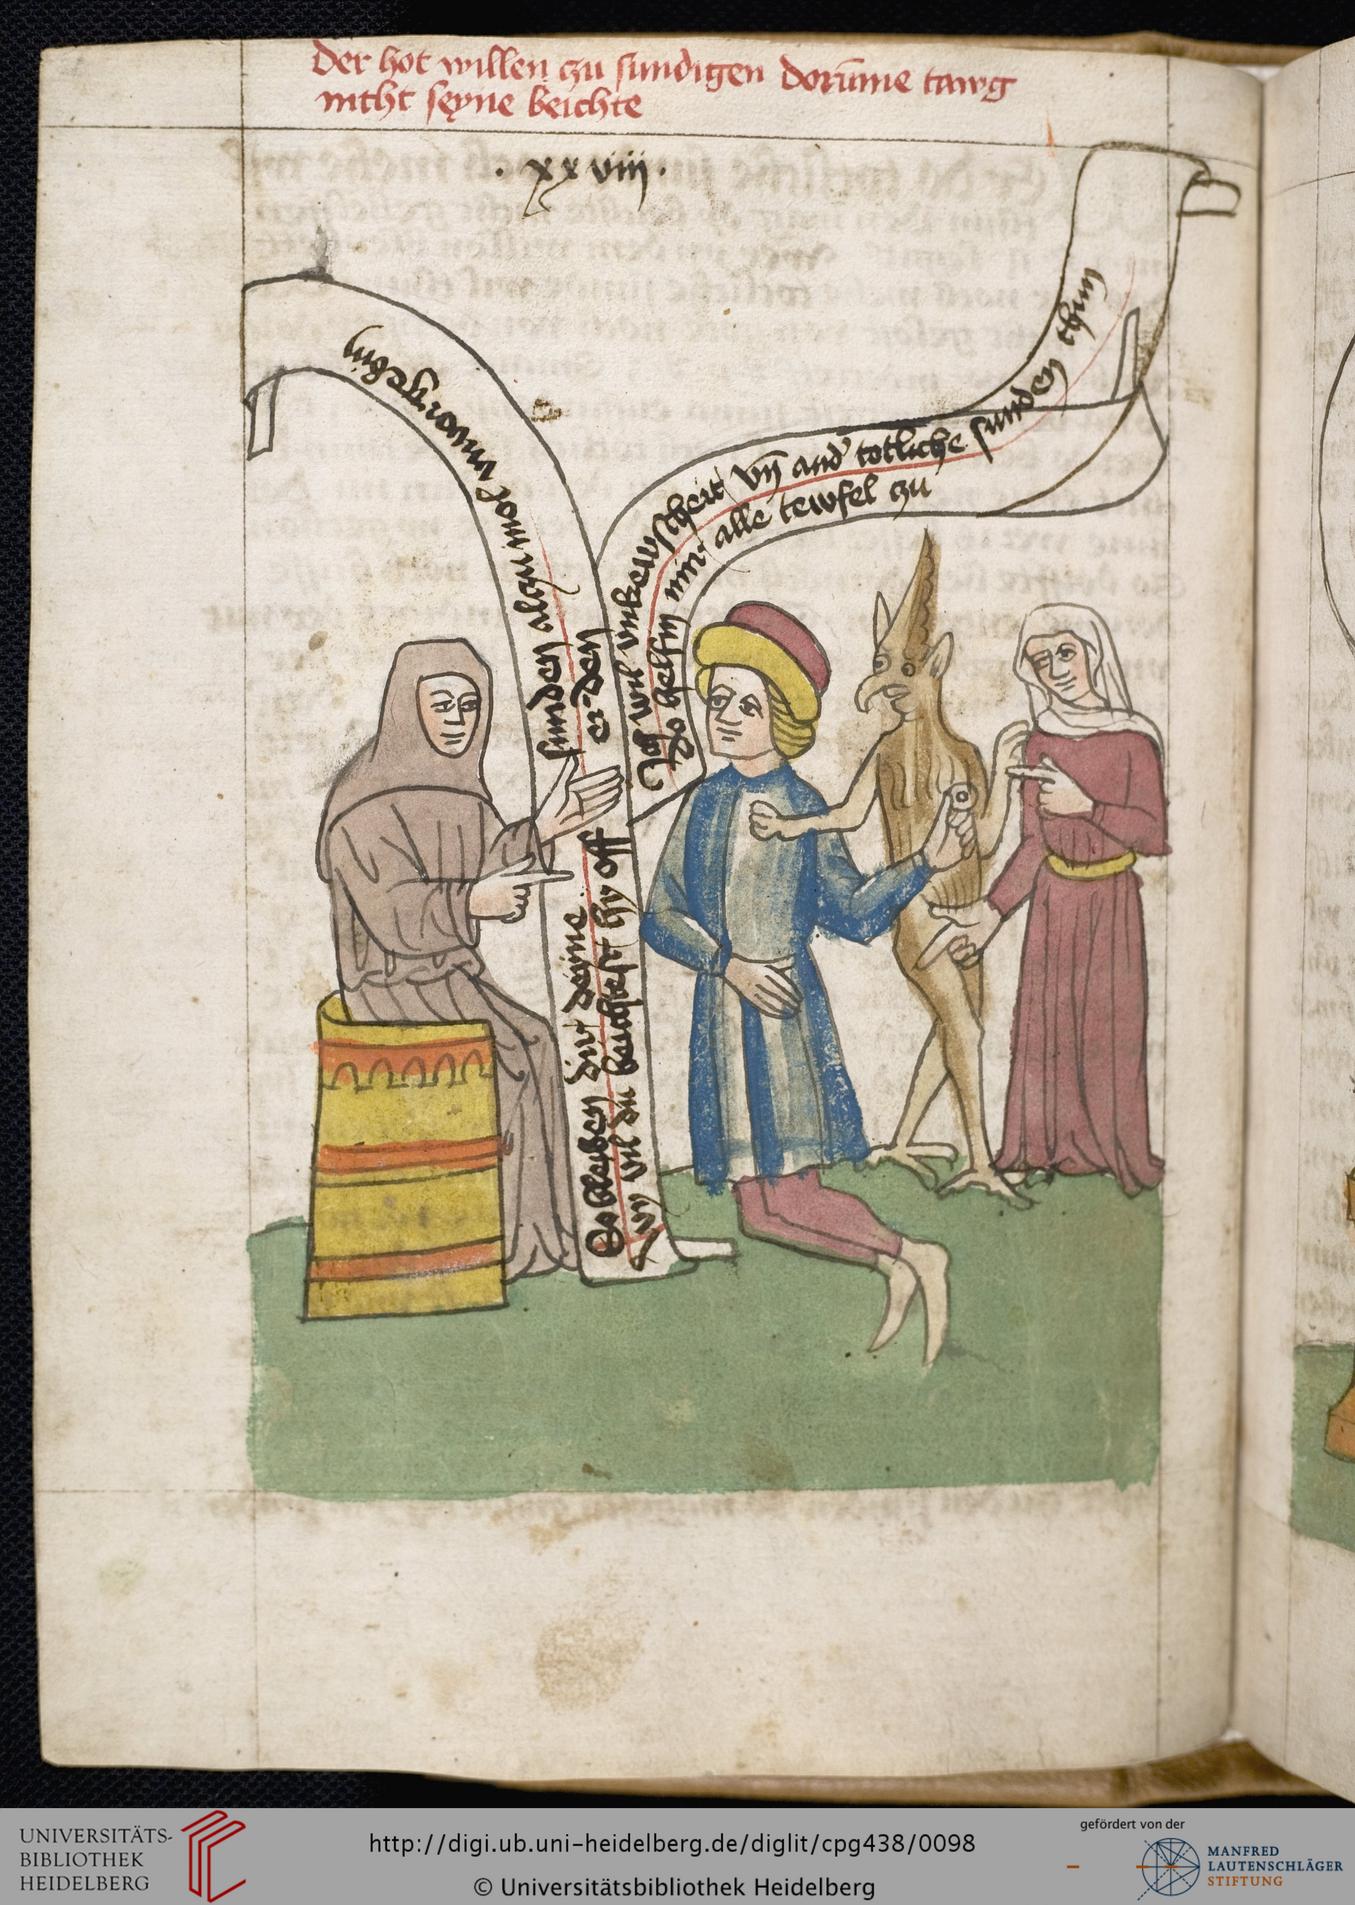 der hot willen czu sundigen dorūme tawg
nicht seyne beichte
. xx viij .
So bleiben dir deyne sunden alczumol vnuorgebin
vn vil du beichtest hy off erden
Ich wil vnkewscheit vn̄ and' totliche sunden thun
Do helfin mir alle tewfel czu
UNIVERSITÄTS-
BIBLIOTHEK
HEIDELBERG
http://digi.ub.uni-heidelberg.de/diglit/cpg438/0098
© Universitätsbibliothek Heidelberg
gefördert von der
MANFRED
LAUTENSCHLÄGER
STIFTUNG